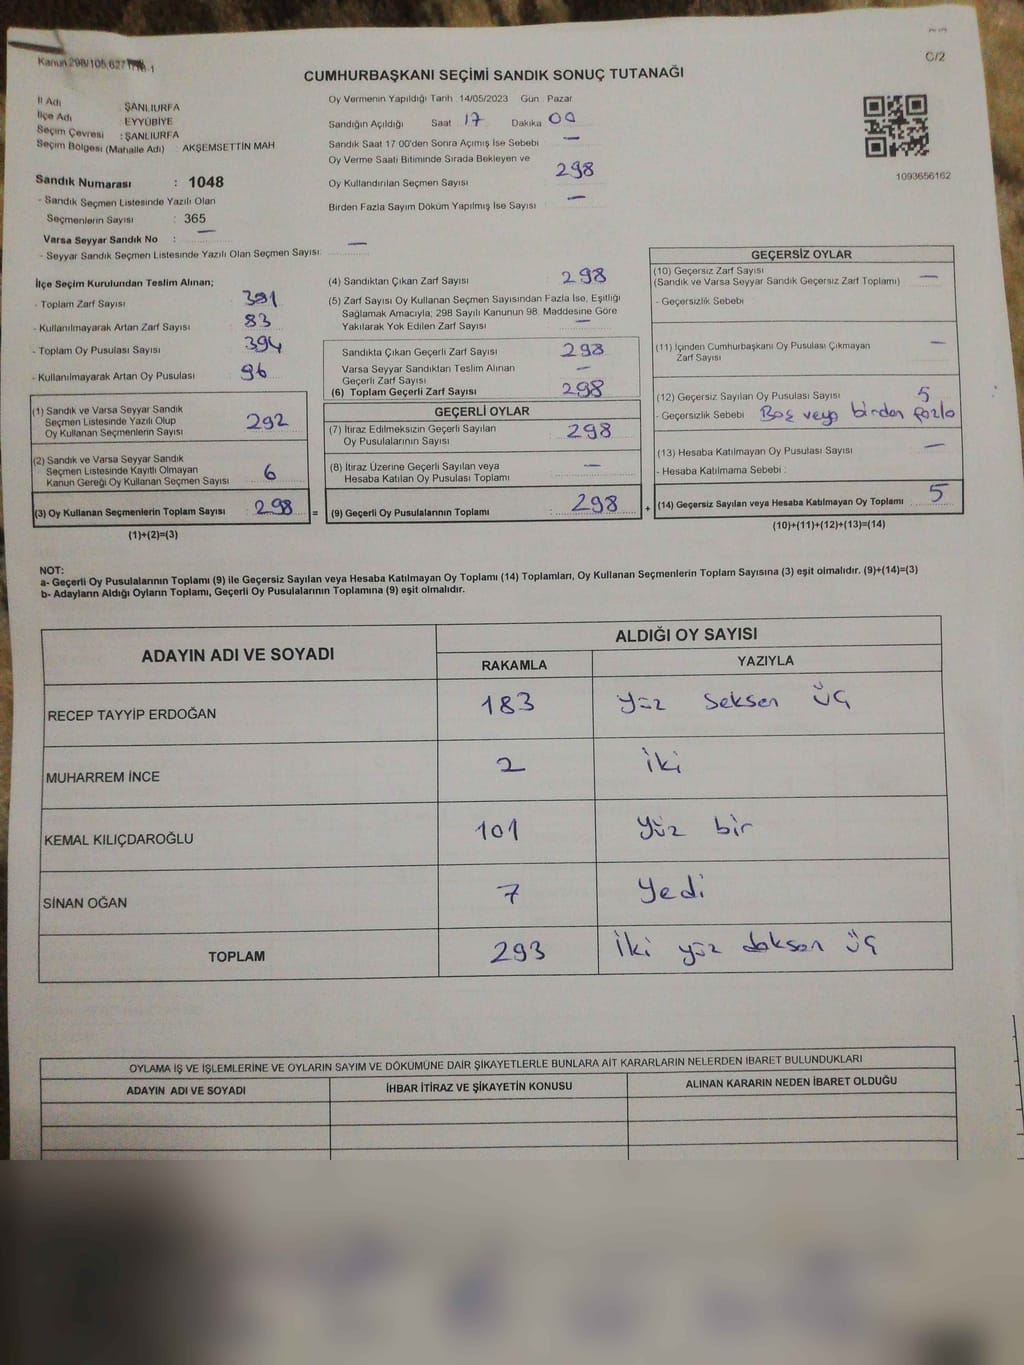 Kanun 298/105,627
C/2
CUMHURBAŞKANI SEÇİMİ SANDIK SONUÇ TUTANAĞI
İl Adı : ŞANLIURFA
İlçe Adı : EYYÜBİYE
Seçim Çevresi : ŞANLIURFA
Seçim Bölgesi (Mahalle Adı) : AKŞEMSETTİN MAH
Sandık Numarası : 1048
- Sandık Seçmen Listesinde Yazılı Olan
Seçmenlerin Sayısı : 365
Varsa Seyyar Sandık No : —
- Seyyar Sandık Seçmen Listesinde Yazılı Olan Seçmen Sayısı: —
Oy Vermenin Yapıldığı Tarih 14/05/2023 Gün Pazar
Sandığın Açıldığı Saat 17 Dakika 00
Sandık Saat 17 00'den Sonra Açımış İse Sebebi —
Oy Verme Saati Bitiminde Sırada Bekleyen ve
Oy Kullandırılan Seçmen Sayısı 298
Birden Fazla Sayım Döküm Yapılmış İse Sayısı —
1093656162
İlçe Seçim Kurulundan Teslim Alınan;
- Toplam Zarf Sayısı : 381
- Kullanılmayarak Artan Zarf Sayısı : 83
- Toplam Oy Pusulası Sayısı : 394
- Kullanılmayarak Artan Oy Pusulası : 96
(1) Sandık ve Varsa Seyyar Sandık
Seçmen Listesinde Yazılı Olup
Oy Kullanan Seçmenlerin Sayısı 292
(2) Sandık ve Varsa Seyyar Sandık
Seçmen Listesinde Kayıtlı Olmayan
Kanun Gereği Oy Kullanan Seçmen Sayısı 6
(3) Oy Kullanan Seçmenlerin Toplam Sayısı : 298 =
(1)+(2)=(3)
(4) Sandıktan Çıkan Zarf Sayısı 298
(5) Zarf Sayısı Oy Kullanan Seçmen Sayısından Fazla İse, Eşitliği
Sağlamak Amacıyla; 298 Sayılı Kanunun 98. Maddesine Göre
Yakılarak Yok Edilen Zarf Sayısı —
Sandıkta Çıkan Geçerli Zarf Sayısı 298
Varsa Seyyar Sandıktan Teslim Alınan
Geçerli Zarf Sayısı —
(6) Toplam Geçerli Zarf Sayısı 298
GEÇERLİ OYLAR
(7) İtiraz Edilmeksizin Geçerli Sayılan
Oy Pusulalarının Sayısı 298
(8) İtiraz Üzerine Geçerli Sayılan veya
Hesaba Katılan Oy Pusulası Toplamı —
(9) Geçerli Oy Pusulalarının Toplamı : 298 +
GEÇERSİZ OYLAR
(10) Geçersiz Zarf Sayısı
(Sandık ve Varsa Seyyar Sandık Geçersiz Zarf Toplamı) —
- Geçersizlik Sebebi
(11) İçinden Cumhurbaşkanı Oy Pusulası Çıkmayan
Zarf Sayısı —
(12) Geçersiz Sayılan Oy Pusulası Sayısı 5
- Geçersizlik Sebebi Boş veya birden fazla
(13) Hesaba Katılmayan Oy Pusulası Sayısı —
- Hesaba Katılmama Sebebi :
(14) Geçersiz Sayılan veya Hesaba Katılmayan Oy Toplamı 5
(10)+(11)+(12)+(13)=(14)
NOT:
a- Geçerli Oy Pusulalarının Toplamı (9) ile Geçersiz Sayılan veya Hesaba Katılmayan Oy Toplamı (14) Toplamları, Oy Kullanan Seçmenlerin Toplam Sayısına (3) eşit olmalıdır. (9)+(14)=(3)
b- Adayların Aldığı Oyların Toplamı, Geçerli Oy Pusulalarının Toplamına (9) eşit olmalıdır.
ADAYIN ADI VE SOYADI
ALDIĞI OY SAYISI
RAKAMLA YAZIYLA
RECEP TAYYİP ERDOĞAN 183 yüz seksen üç
MUHARREM İNCE 2 iki
KEMAL KILIÇDAROĞLU 101 yüz bir
SİNAN OĞAN 7 Yedi
TOPLAM 293 iki yüz doksan üç
OYLAMA İŞ VE İŞLEMLERİNE VE OYLARIN SAYIM VE DÖKÜMÜNE DAİR ŞİKAYETLERLE BUNLARA AİT KARARLARIN NELERDEN İBARET BULUNDUKLARI
ADAYIN ADI VE SOYADI İHBAR İTİRAZ VE ŞİKAYETİN KONUSU ALINAN KARARIN NEDEN İBARET OLDUĞU